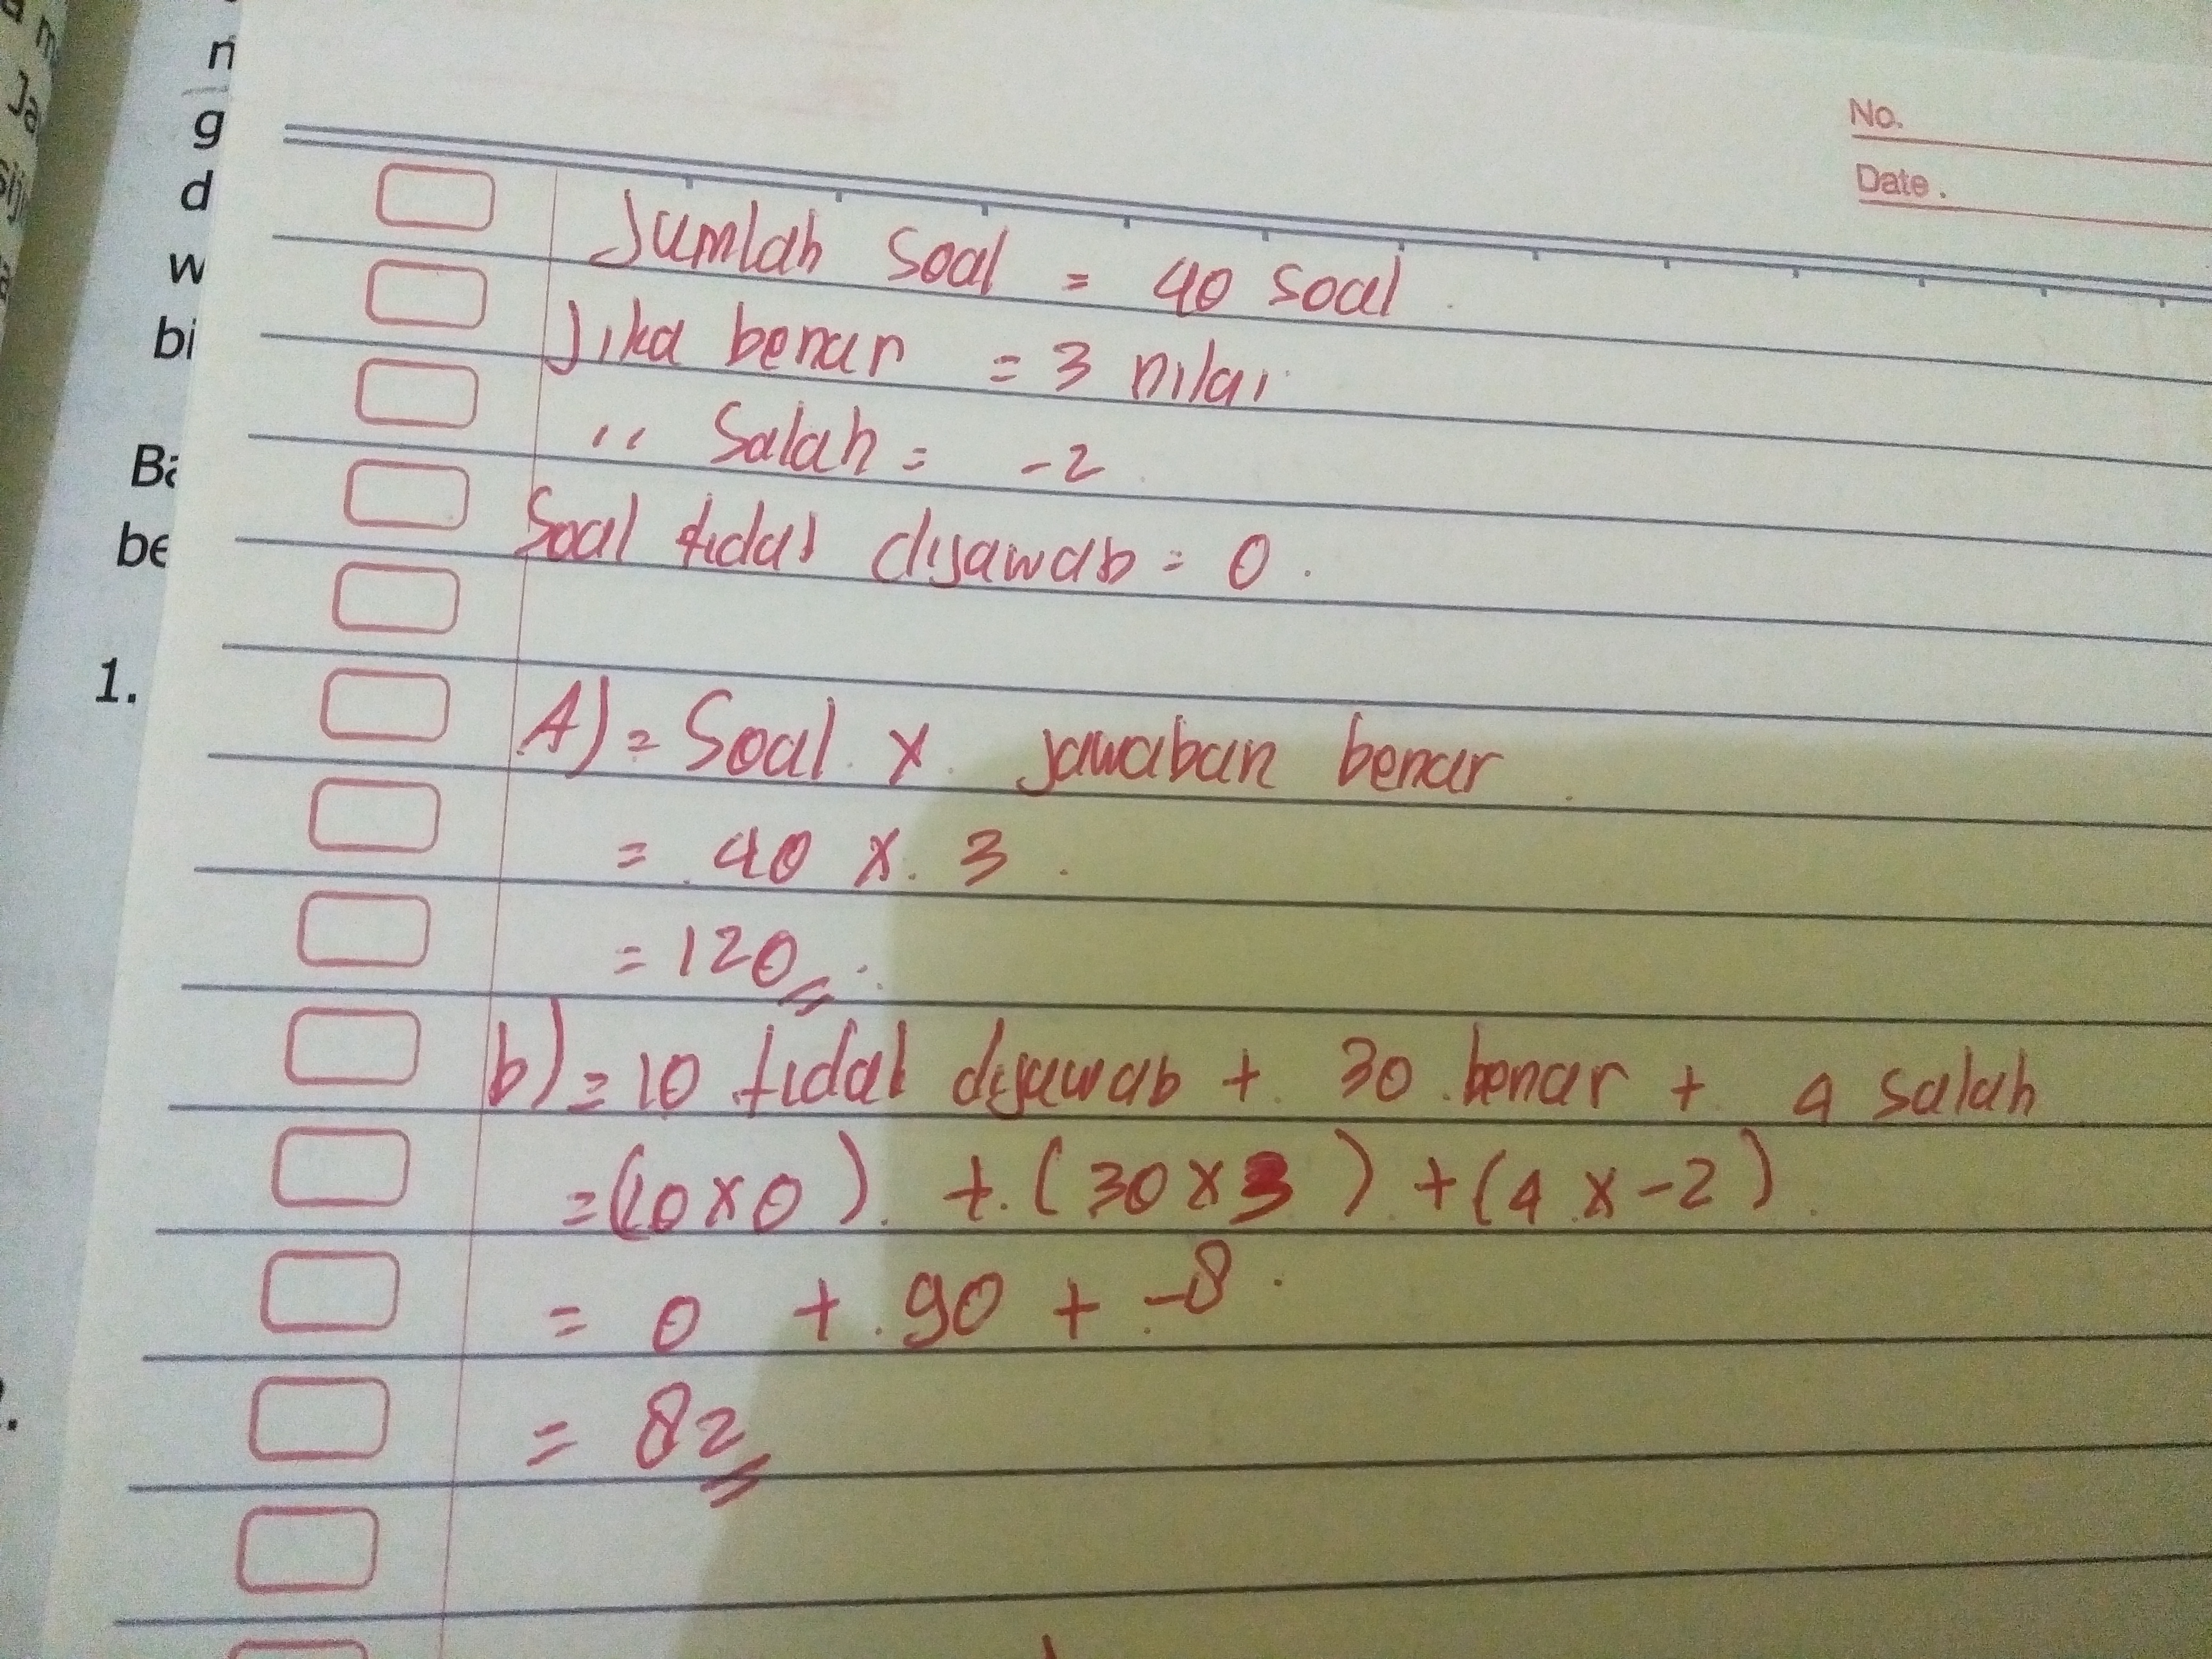 No.
Date.
n
g
d
w
bi
Ba
be
1.
Jumlah soal = 40 soal.
Jika benar = 3 nilai
" Salah = -2
Soal tidak dijawab = 0.
A) = Soal x jawaban benar
= 40 x 3
= 120
b) = 10 tidak dijawab + 30 benar + 4 salah
= (10 x 0) + (30 x 3) + (4 x -2)
= 0 + 90 + -8
= 82